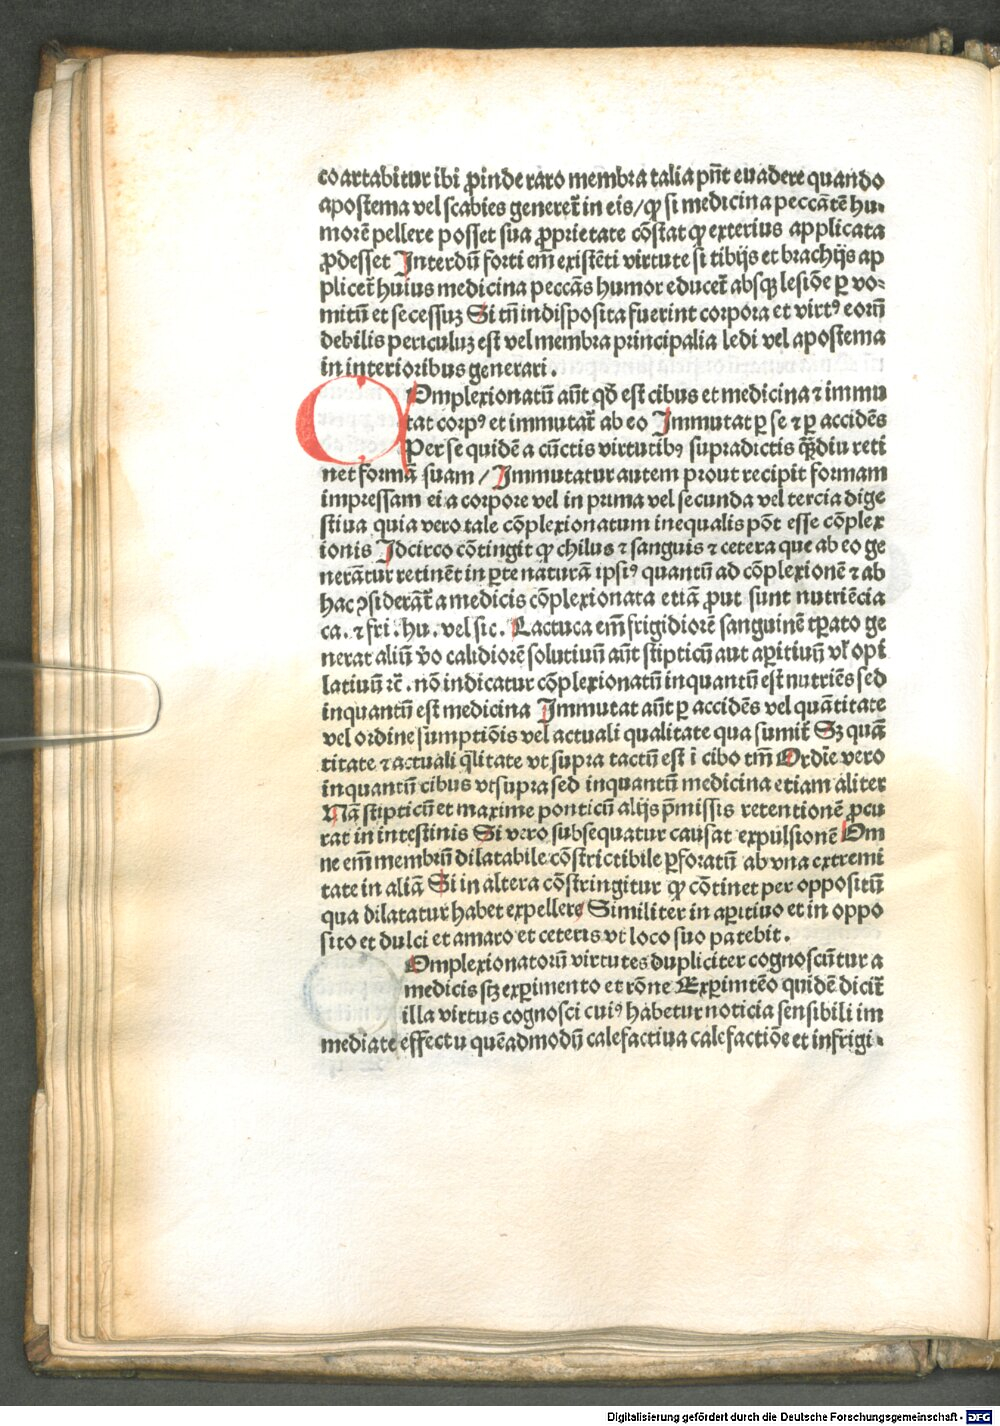 coartabitur ibi ꝓinde raro membra talia pn̄t euadere quando
apostema vel scabies generet̄ in eis/ꝙ si medicina peccātē hu⸗
morē pellere posset sua ꝓprietate cōstat ꝙ exterius applicata
ꝓdesset Interdū forti em̄ existēti virtute si tibijs et brachijs ap
plicet̄ huius medicina peccās humor educet̄ absqꝫ lesiōe ꝑ vo⸗
mitū et secessuꝫ Si tn̄ indisposita fuerint corpora et virtꝰ eorū
debilis periculuꝫ est vel membra principalia ledi vel apostema
in interioribus generari.
COmplexionatū aūt qd̄ est cibus et medicina ⁊ immu
tat corpꝰ et immutat̄ ab eo Immutat ꝑ se ⁊ ꝑ accidēs
Per se quidē a cūctis virtutibꝰ supradictis qm̄diu reti
net formā suam / Immutatur autem prout recipit formam
impressam ei a corpore vel in prima vel secunda vel tercia dige
stiua quia vero tale cōplexionatum inequalis pōt esse cōplex
ionis Idcirco cōtingit ꝙ chilus ⁊ sanguis ⁊ cetera que ab eo ge
nerātur retinēt in ꝑte naturā ipsiꝰ quantū ad cōplexionē ⁊ ab
hac ꝯsiderāt̄ a medicis cōplexionata etiā ꝓut sunt nutriēcia
ca. ⁊ fri. hu. vel sic. Lactuca em̄ frigidiorē sanguinē tꝑato ge
nerat aliū v̄o calidiorē solutiuū aūt stipticū aut aꝑitiuū vl̄ opi
latiuū ⁊c̄. nō indicatur cōplexionatū inquantū est nutriēs sed
inquantū est medicina Immutat aūt ꝑ accidēs vel quātitate
vel ordine sumptiōis vel actuali qualitate qua sumit̄ Sꝫ quā
titate ⁊ actuali q̄litate vt supra tactū est ī cibo tm̄ Ordīe vero
inquantū cibus vt supra sed inquantū medicina etiam aliter
Nā stipticū et maxime ponticū alijs p̄missis retentionē ꝓcu
rat in intestinis Si vero subsequatur causat expulsionē Om
ne em̄ membrū dilatabile cōstrictibile ꝑforatū ab vna extremi
tate in aliā Si in altera cōstringitur ꝙ cōtinet per oppositū
qua dilatatur habet expellere Similiter in aꝑitiuo et in oppo
sito et dulci et amaro et ceteris vt loco suo patebit.
COmplexionatorū virtutes dupliciter cognoscūtur a
medicis sꝫ experimento et rōne Exꝑimēto quidē dicit̄
illa virtus cognosci cuiꝰ habetur noticia sensibili im
mediate effectu quēadmodū calefactiua calefactiōe et infrigi⸗
Digitalisierung gefördert durch die Deutsche Forschungsgemeinschaft - DFG